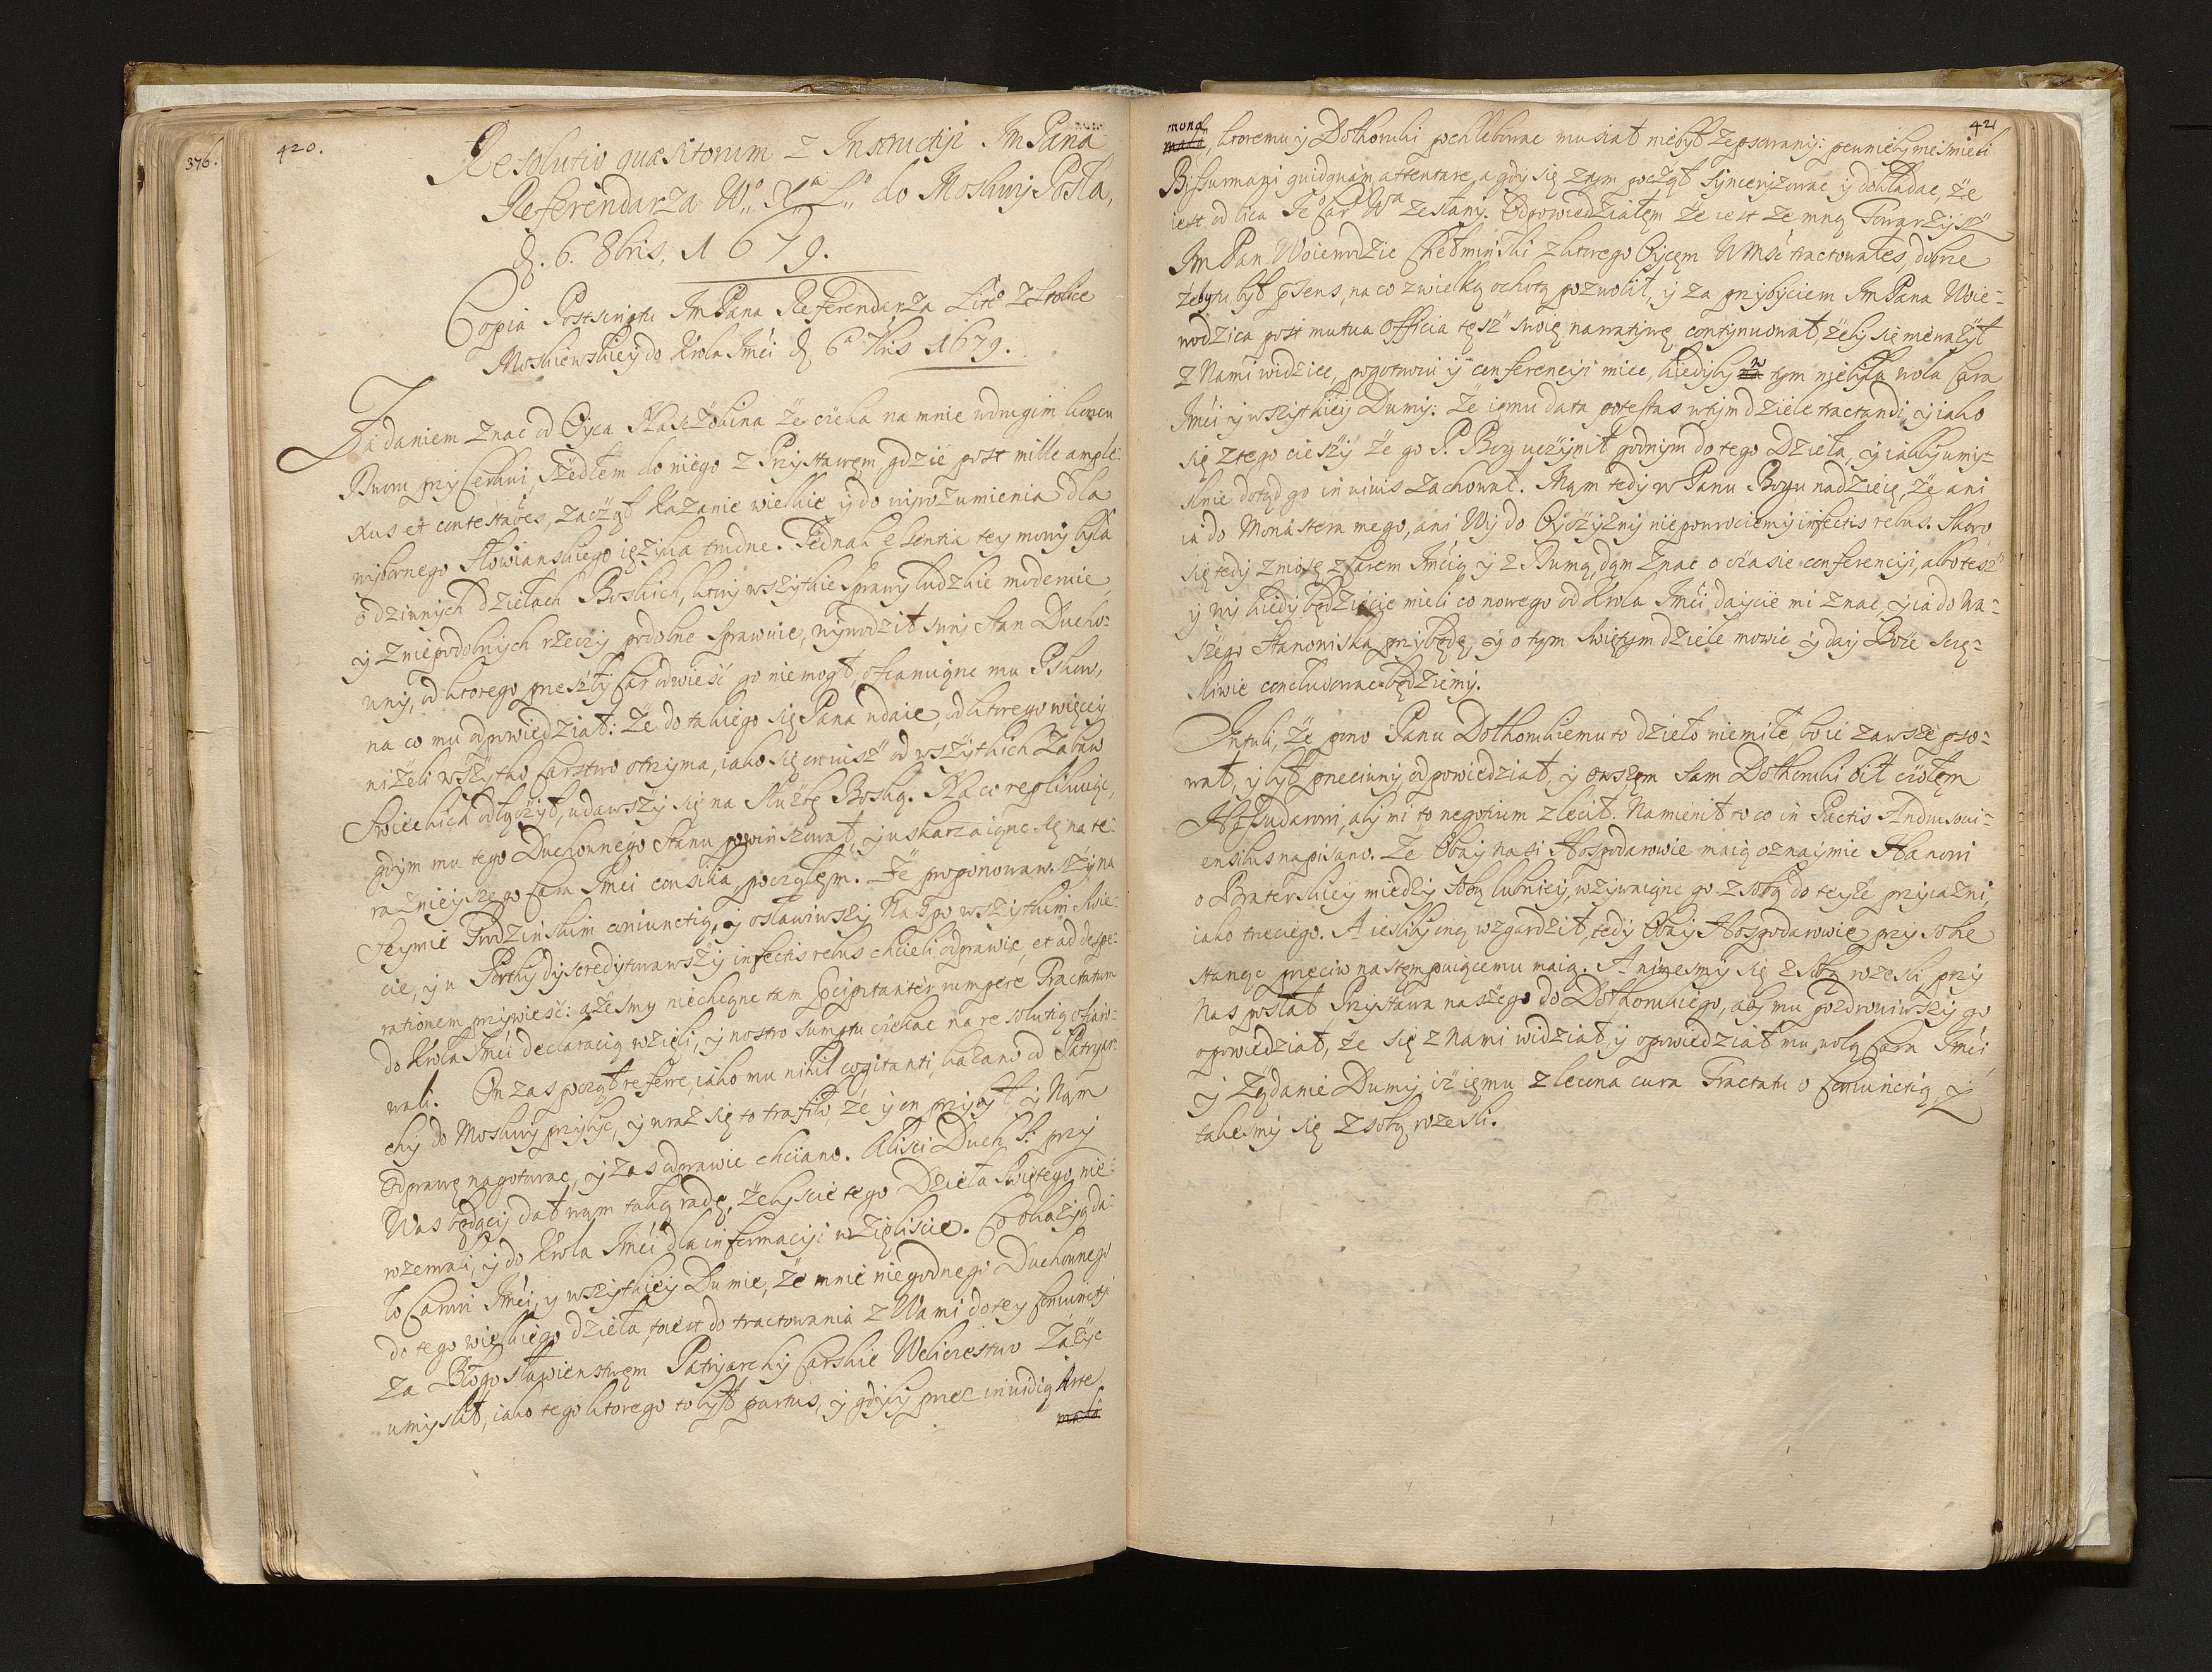 376.
420.
Resolutio quæsitorum z Instructiji Jm Pana
Referendarza W.° X.ª L.° do Moskwÿ Posła,
d. 6. 8bris, 1679.
Copia Postscriptu Jm Pana Referendarza Litº z Stolice
Moskiewskieÿ do Krola Jmći d 6ª 7bris 1679.
Za daniem znac od Oÿca Naszczokina że czeka na mnie w drugim koncu
Dworu przÿ Cerkwi, szedłem do niego z Przÿstawem, gdzie post mille ample-
xus et contestaões, zaczął kazanie wielkie ÿ do wÿrozumienia dla
wÿbornego Słowianskiego ięzÿka trudne. Jednak essentia tey mowÿ bÿła
o dziwnÿch dziełach Boskich, ktorÿ wszÿtkie sprawÿ ludzkie moderuie,
ÿ z niepodobnÿch rzeczÿ podobne sprawuie, wÿwodził swoÿ stan Ducho-
wnÿ, od ktorego przeszłÿ Car odwiesć go niemogł, ofiaruiąc mu Pskow,
na co mu odpowiedział: że do takiego się Pana udaie, od ktorego więceÿ
niżeli wszÿtko Carstwo otrzÿma, iako się on iusz od wszÿstkich Zabaw
Swieckich odłączÿł, udawszÿ się na służbę Boską. Na co replikuiąc,
gdÿm mu tego Duchownego stanu powinszował, ÿ uskarzaiąc się na te-
raznieÿszego Cara Jmci consilia, począłem. Że proponowawszÿ na
Seÿmie Grodzinskim coniunctią, ÿ osławiwszÿ Nas po wszÿtkim swie-
cie, ÿ u Portÿ dÿscredÿtowawszÿ infectis rebus chcieli odprawic, et ad despe-
rationem przÿwiesć: ażesmy niechcąc tam pcipitanter rumpere Tractatum
do Krola Jmći declaracią wzięli, ÿ nostro sumptu czekac na resolutią ofiaro-
wali. On zas począł referre, iako mu nihil cogitanti, kazano od Patrÿar-
chÿ do Moskwÿ przÿbÿc, ÿ wraz się to trafiło, że ÿ on przÿbÿł ÿ Nąm
Odprawę nagotowac, ÿ zas odprawic chciano. Alisci Duch S. przÿ
Was będącÿ dał wąm taką radę, żebÿscie tego Dzieła Swiętego nie-
rozerwali, ÿ do Krola Jmći dla informaciÿi wzięliscie. Co okazÿą da-
ło Carowi Jmći, y wszÿtkieÿ Dumie, że mnie niegodnego Duchownego
do tego wielkiego dzieła, toiest do tractowania z Wami do teÿ Coniunctÿi
za Błogosławienstwem Patrÿarchÿ Carskie Weliczestwo zażÿc
umÿslił, iako tego ktorego to bÿł partus, ÿ gdÿbÿ przez inuidią Arte-
421
mona, ktoremu ÿ Dołhoruki pochlebowac musiał niebÿł zepsowanÿ: pewniebÿ niesmieli
Bissurmani quidquam attentare, a gdÿ się zatÿm począł sÿncerÿzowac ÿ dokładac, że
iest od lica Jeº Carº Wª zesłanÿ. Odpowiedziałęm że iest ze mną Towarzÿsz
Jm Pan Woiewodzic Chełminski z ktorego Oÿcęm W Msć tractowałes, dobrze
żebÿ tu bÿł psens, na co z wielką ochotą pozwolił, ÿ za przÿbÿciem Jm Pana Woie-
wodzica post mutua officia tęsz swoię narratÿwę contÿnuował, żebÿ się nieważÿł
z Nami widziec, pogotowiu ÿ conferencÿi miec, kiedÿbÿ w tym niebÿła wola Cara
Jmći ÿ wszÿtkieÿ Dumÿ: że iemu data potestas w tÿm dziele tractandi, ÿ iako
się ztego cieszÿ że go P. Bog uczÿnił godnÿm do tego Dzieła, ÿ iakbÿ umÿ-
slnie dotąd go in uiuis zachował. Mąm tedÿ w Panu Bogu nadzieię, że ani
ia do Monastera mego, ani Wÿ do Oÿczÿznÿ niepowrociemÿ infectis rebus. Skoro
się tedÿ zniosę z Carem Jmćią ÿ z Dumą, dąm znac o czasie conferencÿi, albo tesz
ÿ wÿ kiedÿ będziecie mieli co nowego od Krola Jmći, daÿcie mi znac, ÿ ia do Wa-
szego stanowiska przÿbędę, ÿ o tÿm swiętÿm dziele mowic ÿ daÿ Boże szczę-
sliwie concludowac będziemÿ.
Intuli, że pono Panu Dołhorukiemu to dzieło niemiłe, bo ie zawsze pso-
wał, ÿ bÿł przeciwnÿ, odpowiedział, ÿ owszęm sam Dołhoruki bił czołęm
Hossudarowi, abÿ mi to negotium zlecił. Namienił to co in Pactis Andrusoui-
ensibus napisano. Że obaÿ nasi Hospodarowie maią oznaÿmic Hanowi
o Braterskieÿ miedzÿ sobą lubwiejÿ, wzÿwaiąc go z sobą do teÿże przÿiazni,
iako trzeciego. A ieslibÿ oną wzgardził, tedÿ obaÿ Hospodarowie przÿ sobie
stanąc przeciw następuiącemu maią. A nizesmÿ się z sobą rozesli, przÿ
Nas posłał Przÿstawa naszego do Dołhorukiego, abÿ mu pozdrowiwszÿ go
opowiedział, że się z Nami widział, ÿ opowiedział mu, wolą Cara Jmći
ÿ żądanie Dumÿ, iż iemu zlecona cura Tractatu o Coniunctią, ÿ
takesmÿ się z sobą rozesli.